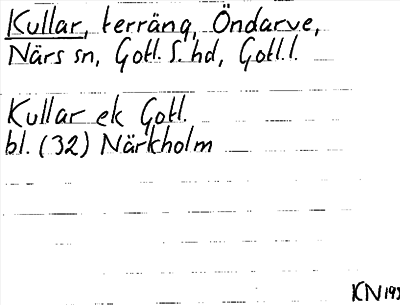 Kullar, terräng, Öndarve,
Närs sn, Gotl. S. hd, Gotl. l.
Kullar ek Gotl.
bl. (32) Närkholm
KN 193